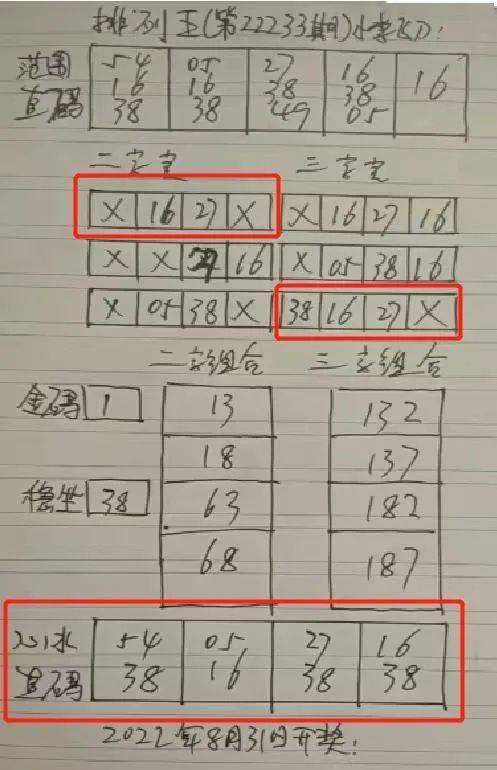 排列五(第22233期)小李KD:
范围 54 05 27 16 16
直码 16 16 38 38
38 38 49 05
二字定 三字定
X 16 27 X X 16 27 16
X X 27 16 X 05 38 16
X 05 38 X 38 16 27 X
二字组合 三字组合
金码 1 13 132
18 137
稳坐 38 63 182
68 187
心水 54 05 27 16
直码 38 16 38 38
2022年8月31日开奖: